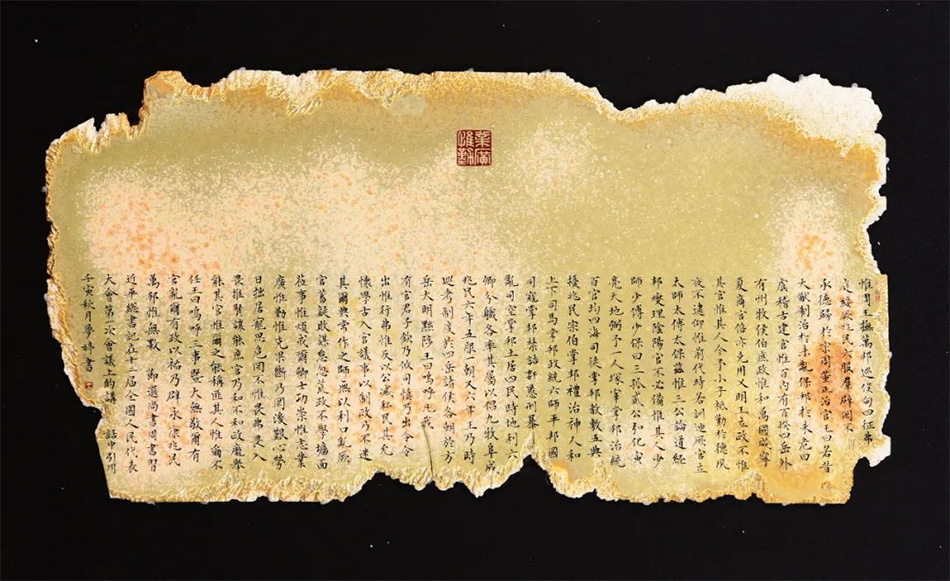 業廣惟勤
惟周王撫萬邦巡侯甸四征弗
庭綏厥兆民六服羣辟罔不
承德歸於宗周董正治官王曰若昔
大猷制治於未亂保邦於未危曰
虞稽古建官惟百內有百揆四岳外
有州牧侯伯庶政惟和萬國咸寧
夏商官倍亦克用乂明王立政不惟
其官惟其人今予小子祗勤於德夙
夜不逮仰惟前代時若訓迪厥官立
太師太傅太保茲惟三公論道經
邦燮理陰陽官不必備惟其人少
師少傅少保曰三孤貳公弘化寅
亮天地弼予一人冢宰掌邦治統
百官均四海司徒掌邦教敷五典
擾兆民宗伯掌邦禮治神人和
上下司馬掌邦政統六師平邦國
司寇掌邦禁詰姦慝刑暴
亂司空掌邦土居四民時地利六
卿分職各率其屬以倡九牧阜成
兆民六年五服一朝又六年王乃時
巡考制度於四岳諸侯各朝於方
岳大明黜陟王曰嗚呼凡我
有官君子欽乃攸司慎乃出令令
出惟行弗惟反以公滅私民其允
懷學古入官議事以制政乃不迷
其爾典常作之師無以利口亂厥
官蓄疑敗謀怠忽荒政不學牆面
莅事惟煩戒爾卿士功崇惟志業
廣惟勤惟克果斷乃罔後艱心勞
日拙居寵思危罔不惟畏弗畏入
畏推賢讓能庶官乃和不和政厖舉
能其官惟爾之能稱匪其人惟爾不
任王曰嗚呼三事暨大夫敬爾有
官亂爾有政以祐乃辟永康兆民
萬邦惟無斁 尚書周官習
近平總書記在十二屆全國人民代表
大會第一次會議上的講話引用
壬寅秋月夢婷書